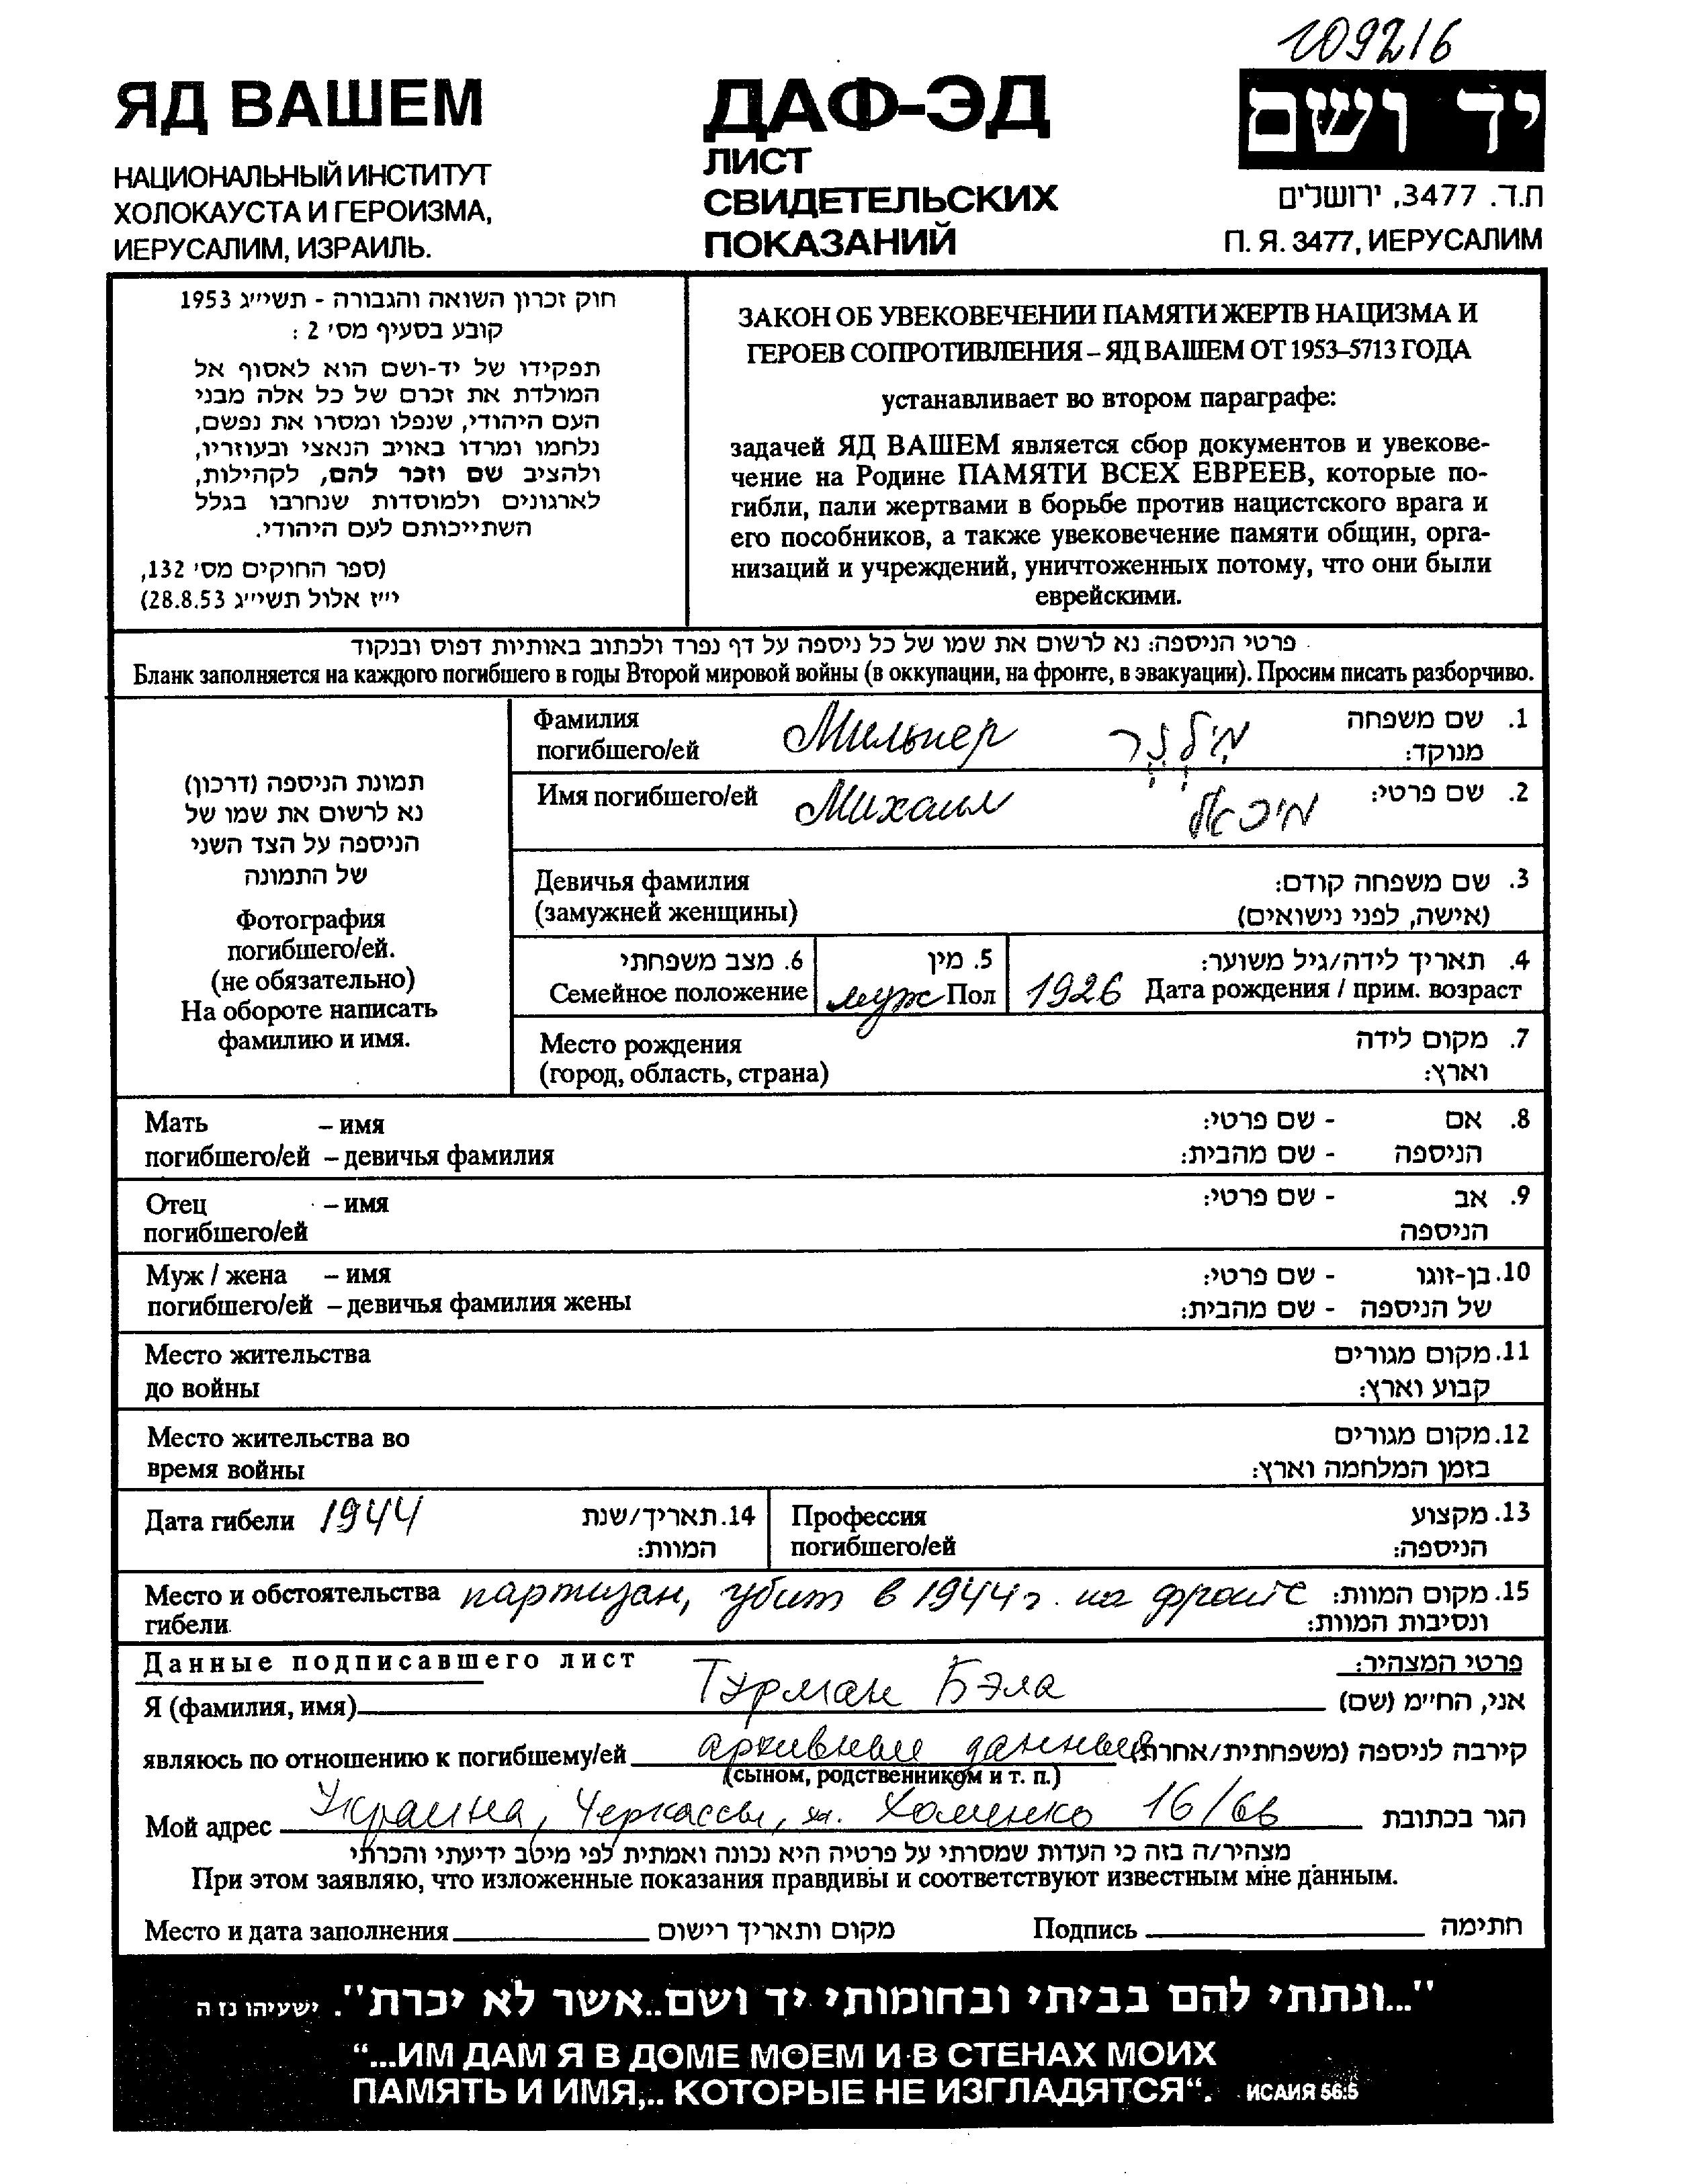 109216
ЯД ВАШЕМ
НАЦИОНАЛЬНЫЙ ИНСТИТУТ
ХОЛОКАУСТА И ГЕРОИЗМА,
ИЕРУСАЛИМ, ИЗРАИЛЬ.
ДАФ-ЭД
ЛИСТ
СВИДЕТЕЛЬСКИХ
ПОКАЗАНИЙ
יד ושם
ת.ד. 3477, ירושלים
П. Я. 3477, ИЕРУСАЛИМ
חוק זכרון השואה והגבורה - תשי״ג 1953
קובע בסעיף מס׳ 2 :
תפקידו של יד-ושם הוא לאסוף אל
המולדת את זכרם של כל אלה מבני
העם היהודי, שנפלו ומסרו את נפשם,
נלחמו ומרדו באויב הנאצי ובעוזריו,
ולהציב שם וזכר להם, לקהילות,
לארגונים ולמוסדות שנחרבו בגלל
השתייכותם לעם היהודי.
(ספר החוקים מס׳ 132,
י״ז אלול תשי״ג 28.8.53)
ЗАКОН ОБ УВЕКОВЕЧЕНИИ ПАМЯТИ ЖЕРТВ НАЦИЗМА И
ГЕРОЕВ СОПРОТИВЛЕНИЯ – ЯД ВАШЕМ ОТ 1953–5713 ГОДА
устанавливает во втором параграфе:
задачей ЯД ВАШЕМ является сбор документов и увекове-
чение на Родине ПАМЯТИ ВСЕХ ЕВРЕЕВ, которые по-
гибли, пали жертвами в борьбе против нацистского врага и
его пособников, а также увековечение памяти общин, орга-
низаций и учреждений, уничтоженных потому, что они были
еврейскими.
פרטי הניספה: נא לרשום את שמו של כל ניספה על דף נפרד ולכתוב באותיות דפוס ובנקוד
Бланк заполняется на каждого погибшего в годы Второй мировой войны (в оккупации, на фронте, в эвакуации). Просим писать разборчиво.
תמונת הניספה (דרכון)
נא לרשום את שמו של
הניספה על הצד השני
של התמונה
Фотография
погибшего/ей.
(не обязательно)
На обороте написать
фамилию и имя.
Фамилия Мильнер מילנר 1. שם משפחה
погибшего/ей מנוקד:
Имя погибшего/ей Михаил מיכאל 2. שם פרטי:
Девичья фамилия 3. שם משפחה קודם:
(замужней женщины) (אישה, לפני נישואים)
6. מצב משפחתי 5. מין 4. תאריך לידה/גיל משוער:
Семейное положение муж Пол 1926 Дата рождения / прим. возраст
Место рождения 7. מקום לידה
(город, область, страна) וארץ:
Мать – имя 8. אם - שם פרטי:
погибшего/ей – девичья фамилия הניספה - שם מהבית:
Отец – имя 9. אב - שם פרטי:
погибшего/ей הניספה
Муж / жена – имя 10. בן-זוגו - שם פרטי:
погибшего/ей – девичья фамилия жены של הניספה - שם מהבית:
Место жительства 11. מקום מגורים
до войны קבוע וארץ:
Место жительства во 12. מקום מגורים
время войны בזמן המלחמה וארץ:
Дата гибели 1944 14. תאריך/שנת המוות:
Профессия 13. מקצוע
погибшего/ей הניספה:
Место и обстоятельства партизан, убит в 1944 г. на фронте 15. מקום המוות:
гибели ונסיבות המוות:
Данные подписавшего лист פרטי המצהיר:
Я (фамилия, имя) Турман Бэла אני, הח״מ (שם)
являюсь по отношению к погибшему/ей архивные данные קירבה לניספה (משפחתית/אחרת)
(сыном, родственником и т. п.)
Мой адрес Украина, Черкассы, ул. Хоменко 16/66 הגר בכתובת
מצהיר/ה בזה כי העדות שמסרתי על פרטיה היא נכונה ואמתית לפי מיטב ידיעתי והכרתי
При этом заявляю, что изложенные показания правдивы и соответствуют известным мне данным.
Место и дата заполнения מקום ותאריך רישום Подпись חתימה
"...ונתתי להם בביתי ובחומותי יד ושם..אשר לא יכרת". ישעיהו נז ה
“...ИМ ДАМ Я В ДОМЕ МОЕМ И В СТЕНАХ МОИХ
ПАМЯТЬ И ИМЯ,.. КОТОРЫЕ НЕ ИЗГЛАДЯТСЯ“. ИСАИЯ 56:5